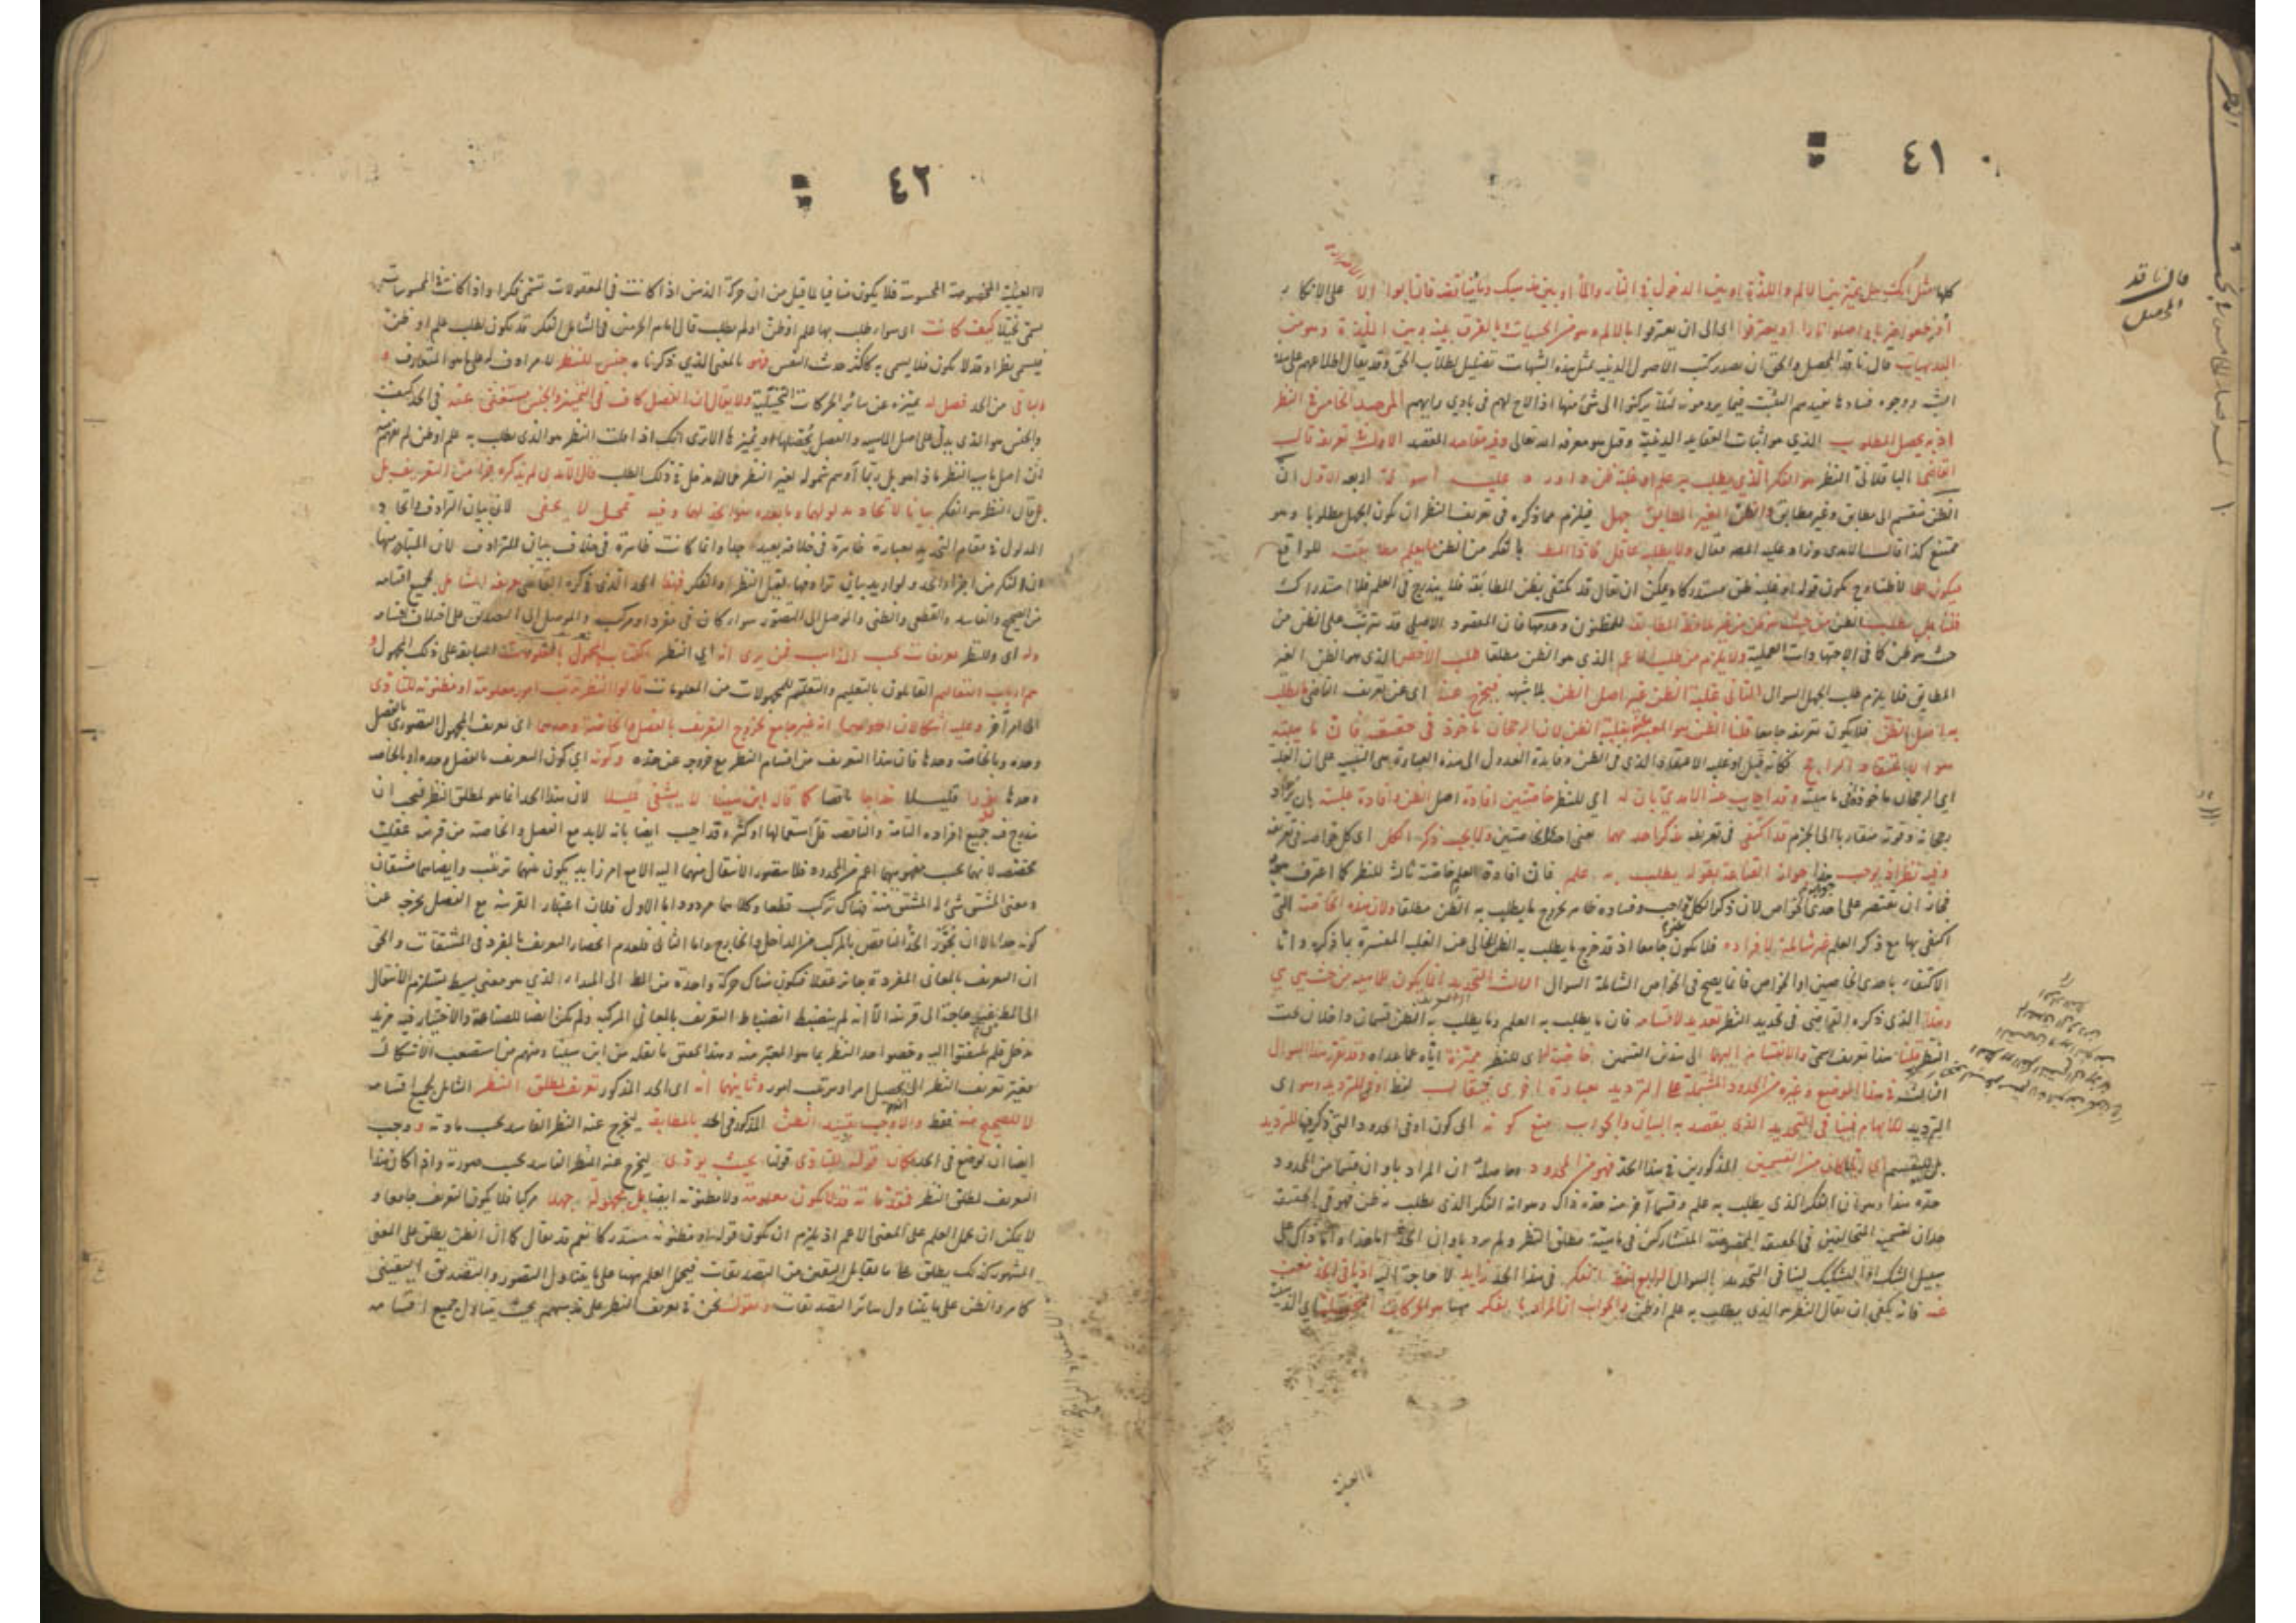 ٤١
قال ناقد
المحصل
كلها مثل انك هل تميز بين الالم واللذة او بين الدخول في النار والماء او بين مذهبك وما يناقضه فان ابوا الا الاصرار على الانكار
أوجعوا ضربا واصلوا نارا او يعترفوا اي الى ان يعترفوا بالالم وهو من الحسيات بالفرق بينه وبين اللذة وهو من
البديهيات قال ناقد المحصل والحق ان تصدير كتب الاصول الدينية بمثل هذه الشبهات تضليل لطلاب الحق وقد يقال اطلاعهم على هذه
الشبه ووجوه فسادها يفيدهم التثبت فيما يرومونه لئلا يركنوا الى شئ منها اذا لاح لهم في بادي رايهم المرصد الخامس في النظر
اذ به يحصل المطلوب الذي هو اثبات العقايد الدينية وقيل هو معرفة الله تعالى وفيه مقاصد المقصد الاول في تعريفه قال
القاضي الباقلاني النظر هو الفكر الذي يطلب به علم او غلبة ظن واورد عليه اسولة اربعة الاول ان
الظن ينقسم الى مطابق وغير مطابق والظن الغير المطابق جهل فيلزم مما ذكره في تعريف النظر ان يكون الجهل مطلوبا وهو
ممتنع كذا قال الآمدي وزاد عليه المصنف فقال ولا يطلبه عاقل فاذا المطلوب بالفكر من الظن ما يعلم مطابقته للواقع
فيكون علما لا ظنا وح يكون قوله او غلبة ظن مستدركا ويمكن ان يقال قد يكتفي بظن المطابقة فلا يندرج في العلم فلا استدراك
قلنا بل يطلب الظن من حيث هو ظن من غير ملاحظة المطابقة للمظنون وعدمها فان المقصود الاصلي قد يترتب على الظن من
حيث هو ظن كما في الاجتهادات العملية ولا يلزم من طلب الاعم الذي هو الظن مطلقا طلب الاخص الذي هو الظن الغير
المطابق فلا يلزم طلب الجهل السوال الثاني غلبة الظن غير اصل الظن بلا شبهة فيخرج عنه اى عن تعريف القاضي ما يطلب
به اصل الظن فلا يكون تعريفه جامعا قلنا الظن هو المعبر عنه بغلبة الظن لان الرجحان مأخوذ في حقيقته فان ماهيته
هو الاعتقاد الراجح فكانه قيل او غلبة الاعتقاد الذي هي الظن وفايدة العدول الى هذه العبارة هي التنبيه على ان الغلبة
اي الرجحان ماخوذة في ماهيته وقد اجاب عنه الآمدي بان له اي للنظر خاصتين افادة اصل الظن وافادة غلبته بان يزداد
رجحانه وقوته متقاربا الى الجزم قد اكتفى في تعريفه بذكر احديهما يعني احدى الخاصتين ولا يجب ذكر الكل اي كل خواصه في تعريفه
وفيه نظر اذ يوجب هذا جواز القناعة بقوله يطلب به علم فان افادة العلم خاصة ثالثة للنظر كما اعترف به
فجاز ان يقتصر على احدى الخواص لان ذكر الكل غير واجب وفساده ظاهر لخروج ما يطلب به الظن مطلقا ولان هذه الخاصة التي
اكتفى بها مع ذكر العلم غير شاملة لافراده فلا يكون جامعا اذ قد خرج ما يطلب به الظن الخالي عن الغلبة المفسرة بما ذكره وانما
الاكتفاء باحدى الخاصتين او الخواص فانما يصح في الخواص الشاملة السوال الثالث التحديد انما يكون للماهية من حيث هي هي
وهذا الذي ذكره القاضي في تحديد النظر تعديد لاقسامه فان ما يطلب به العلم وما يطلب به الظن قسمان داخلان تحت
النظر قلنا هذا تعريف رسمي والانقسام اليهما الى هذين القسمين خاصة له اي للنظر مميزة اياه عما عداه وقد يقرر هذا السوال
الثالث في هذا الموضع وغيره من الحدود المشتملة على الترديد بعبارة اخرى فيقال لفظ او للترديد وهو اي
الترديد للابهام فينافي التحديد الذي يقصد به البيان والجواب منع كونه اي كون او في الحدود التي ذكر فيها للترديد
بل للتقسيم اي ايا كان من القسمين المذكورين في هذا الحد فهو من المحدود وحاصله ان المراد باو ان قسما من المحدود
حده هذا وهو ان الفكر الذي يطلب به علم وقسما آخر منه حده ذاك وهو انه الفكر الذي يطلب به ظن فهو في الحقيقة
حدان لقسميه المتخالفين في الحقيقة المخصوصة المتشاركين في ماهية مطلق النظر ولم يرد باو ان الحد اما هذا واما ذاك على
سبيل الشك او التشكيك لينافي التحديد السوال الرابع لفظ الفكر في هذا الحد زايد لا حاجة اليه اذ باقي الحد مغن
عنه فانه يكفي ان يقال النظر هو الذي يطلب به علم او ظن والجواب ان المراد بالفكر ههنا هو الحركات التخيلية اي الذهنية
لا العينية
٤٢
لا العينية المخصوصة المحسوسة فلا يكون منافيا لما قيل من ان حركة الذهن اذا كانت في المعقولات تسمى فكرا واذا كانت في المحسوسات
تسمى تخيلا كيف كانت اى سواء طلب بها علم او ظن او لم يطلب قال امام الحرمين في الشامل الفكر قد يكون لطلب علم او ظن
فيسمى نظرا وقد لا يكون فلا يسمى به كاكثر حديث النفس فهو بالمعنى الذي ذكرناه جنس للنظر لا مرادف له على ما هو المتعارف و
الباقي من الحد فصل له يميزه عن سائر الحركات التخيلية ولا يقال ان الفصل كاف في التمييز والجنس مستغنى عنه في الحد كيف
والجنس هو الذي يدل على اصل الماهية والفصل يحصلها ويميزها الا ترى انك اذا قلت النظر هو الذي يطلب به علم او ظن لم يفهم منه
ان اصل ماهية النظر ماذا هو بل ربما أوهم شموله لغير النظر مما له مدخل في ذلك الطلب قال الآمدي لم يذكره جزأ من التعريف بل
قال النظر هو الفكر بيانا لاتحاد مدلولهما وما بعده هو الحد لهما وفيه تمحل لا يخفى لان بيان الترادف واتحاد
المدلول في مقام التحديد بعبارة ظاهرة في خلافه بعيد جدا وانما كانت ظاهرة في خلاف بيان الترادف لان المتبادر منها
ان الفكر من اجزاء الحد ولو اريد بيان ترادفهما لقيل النظر والفكر فهذا الحد الذي ذكره القاضي تعريف له شامل لجميع اقسامه
من الصحيح والفاسد والقطعي والظني والموصل الى التصور سواء كان في مفرد او مركب والموصل الى التصديق على اختلاف اقسامه
وله اى وللنظر تعريفات بحسب المذاهب فمن يرى انه اي النظر اكتساب المجهول بالمعلومات السابقة على ذلك المجهول و
هم ارباب التعاليم القائلون بالتعليم والتعلم للمجهولات من المعلومات قالوا النظر ترتيب امور معلومة او مظنونة للتأدي
الى امر آخر وعليه اشكالان احدهما انه غير جامع لخروج التعريف بالفصل والخاصة وحدهما اى تعريف المجهول التصوري بالفصل
وحده وبالخاصة وحدها فان هذا التعريف من اقسام النظر مع خروجه عن حده وكونه اي كون التعريف بالفصل وحده او بالخاصة
وحدها نزرا قليلا خداجا ناقصا كما قال ابن سينا لا يشفى غليلا لان هذا الحد انما هو لمطلق النظر فيجب ان
يندرج فيه جميع افراده التامة والناقصة قل استعمالها او كثر وقد اجيب ايضا بانه لابد مع الفصل والخاصة من قرينة عقلية
مخصصة لانهما بحسب مفهومهما اعم من المحدود فلا يتصور الانتقال منهما اليه الا مع امر زايد يكون بينهما ترتيب وايضا هما مشتقان
ومعنى المشتق شئ له المشتق منه فهناك تركب قطعا وكلاهما مردود اما الاول فلان اعتبار القرينة مع الفصل يخرجه عن
كونه حدا الا ان يجوّز الحد الناقص بالمركب من الداخل والخارج واما الثاني فلعدم انحصار التعريف بالمفرد في المشتقات والحق
ان التعريف بالمعاني المفردة جائز عقلا فيكون هناك حركة واحدة من المطلوب الى المبداء الذي هو معنى بسيط يستلزم الانتقال
الى المطلوب من غير حاجة الى قرينة الا انه لم ينضبط انضباط التعريف بالمعاني المركبة ولم يكن ايضا للصناعة والاختيار فيه مزيد
مدخل فلم يلتفتوا اليه وخصوا حد النظر بما هو المعتبر منه وهذا تحقيق ما نقله من ابن سينا ومنهم من استصعب الاشكال
فغير تعريف النظر الى تحصيل امر او ترتيب امور وثانيهما انه اى الحد المذكور تعريف لمطلق النظر الشامل لجميع اقسامه
لا للصحيح منه فقط والا لوجب تقييد الظن المذكور في الحد بالمطابقة ليخرج عنه النظر الفاسد بحسب مادته ووجب
ايضا ان يوضع في الحد مكان قوله للتأدي قولنا بحيث يؤدي ليخرج عنه النظر الفاسد بحسب صورته واذا كان هذا
التعريف لمطلق النظر فمقدماته قد لا تكون معلومة ولا مظنونة ايضا بل مجهولة جهلا مركبا فلا يكون التعريف جامعا و
لا يمكن ان يحمل العلم على المعنى الاعم اذ يلزم ان يكون قوله او مظنونة مستدركا نعم قد يقال كما ان الظن يطلق على المعنى
المشهور كذلك يطلق على ما يقابل اليقين من التصديقات فيحمل العلم ههنا على ما يتناول التصور والتصديق اليقيني
كما مر والظن على ما يتناول سائر التصديقات ونقول نحن في تعريف النظر على مذهبهم بحيث يتناول جميع اقسامه